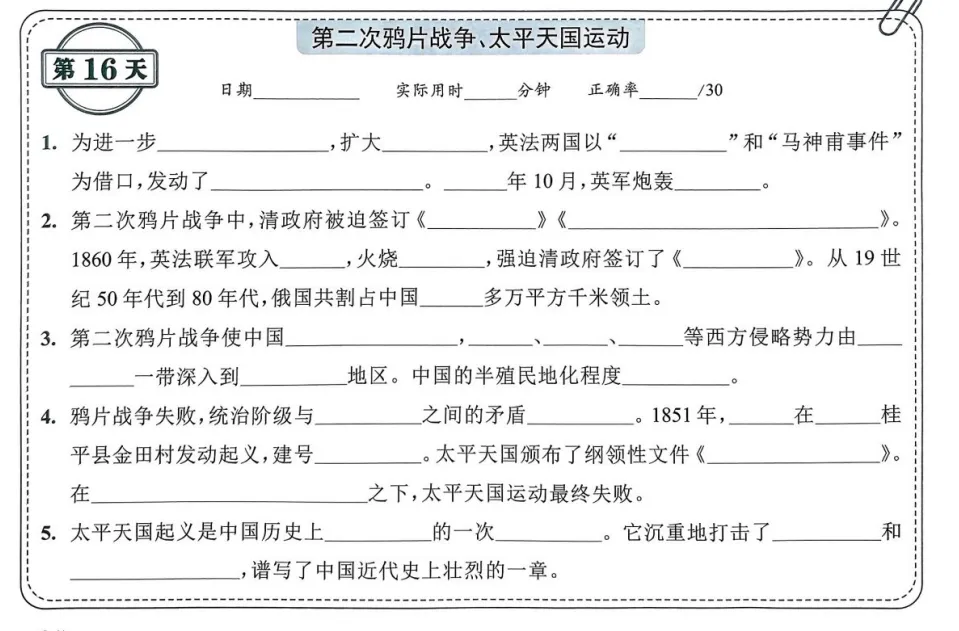 第二次鸦片战争、太平天国运动
第16天
日期__________ 实际用时_____分钟 正确率_____/30
1. 为进一步________________,扩大__________,英法两国以“__________”和“马神甫事件”
为借口,发动了____________________。______年10月,英军炮轰________。
2. 第二次鸦片战争中,清政府被迫签订《__________》《______________________________》。
1860年,英法联军攻入______,火烧________,强迫清政府签订了《__________》。从19世
纪50年代到80年代,俄国共割占中国______多万平方千米领土。
3. 第二次鸦片战争使中国________________,______、______、______等西方侵略势力由____
______一带深入到__________地区。中国的半殖民地化程度__________。
4. 鸦片战争失败,统治阶级与__________之间的矛盾__________。1851年,______在______桂
平县金田村发动起义,建号__________。太平天国颁布了纲领性文件《________________》。
在__________________________之下,太平天国运动最终失败。
5. 太平天国起义是中国历史上__________的一次__________。它沉重地打击了__________和
________________,谱写了中国近代史上壮烈的一章。